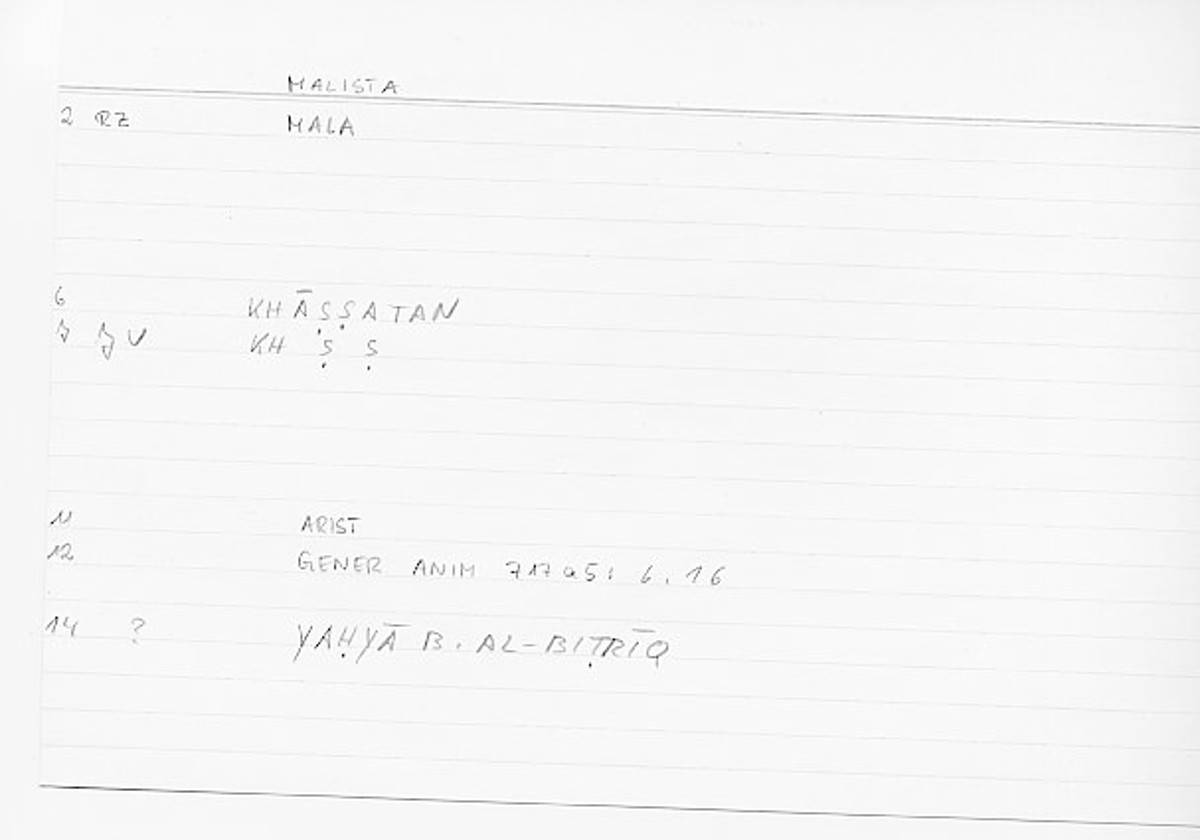 MALISTA
2 RZ MALA
6 KHĀṢṢATAN
KH Ṣ Ṣ
11 ARIST
12 GENER ANIM 717a5: 6.16
14 ? YAḤYĀ B. AL-BIṬRĪQ